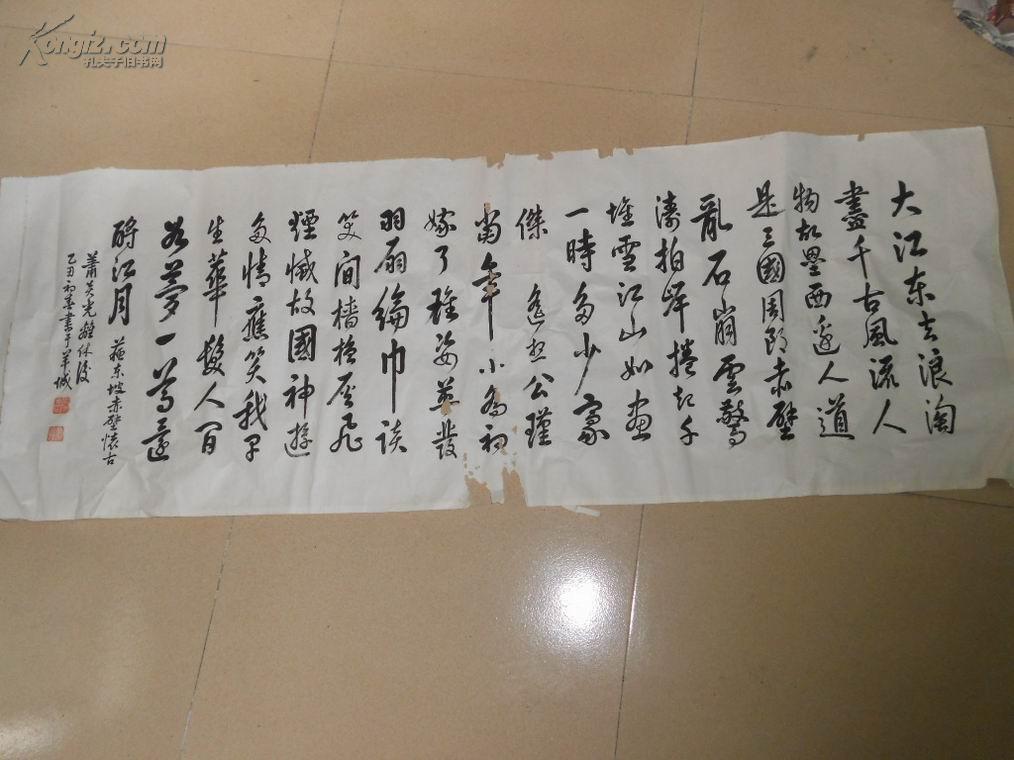 大江东去浪淘
盡千古風流人
物故壘西邊人道
是三國周郎赤壁
亂石崩雲驚
濤拍岸捲起千
堆雪江山如畫
一時多少豪
傑 遙想公瑾
當年小喬初
嫁了雄姿英發
羽扇綸巾談
笑間檣櫓灰飛
煙滅故國神遊
多情應笑我早
生華髮人間
如夢一尊還
酹江月 蘇东坡赤壁懷古
蕭英光離休後
乙丑初春書于羊城
Kongfz.com
孔夫子旧书网